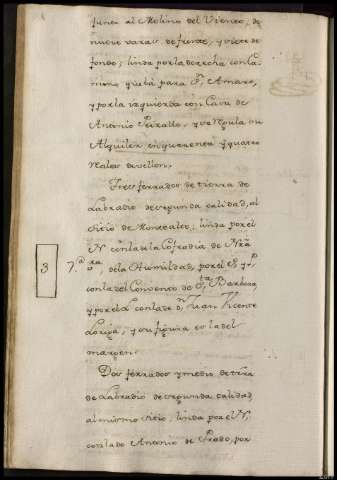 junea al Molino del Viento, de
nueve varas de frente, y siete de
fondo; linda por la derecha con ca
mino q.e va para S.n Amaro,
y por la izquierda con Casa de
Antonio Peixalto, y se regula su
Alquiler en quarenta y quatro
Reales de vellon.
Tres ferrados de tierra de
Labradio de segunda calidad, al
sitio de Montealto; linda por el
N. con la de la Cofradia de Nrã
3 7.ª Srã de la Humildad, por el S. y P.
con la del Convento de S.ta Barbara,
y por el L. con la de D.n Juan Vicente
Loriga, y su figura es la del
margen.
Dos ferrados y medio de trrã
de Labradio de segunda calidad
al mismo sitio; linda por el N.
con la de Antonio de Prado, por